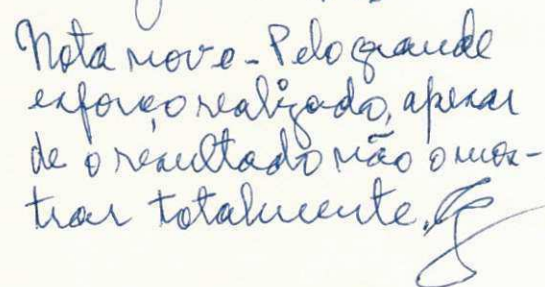 Nota nove - Pelo grande
esforço realizado, apesar
de o resultado não o mos-
trar totalmente.